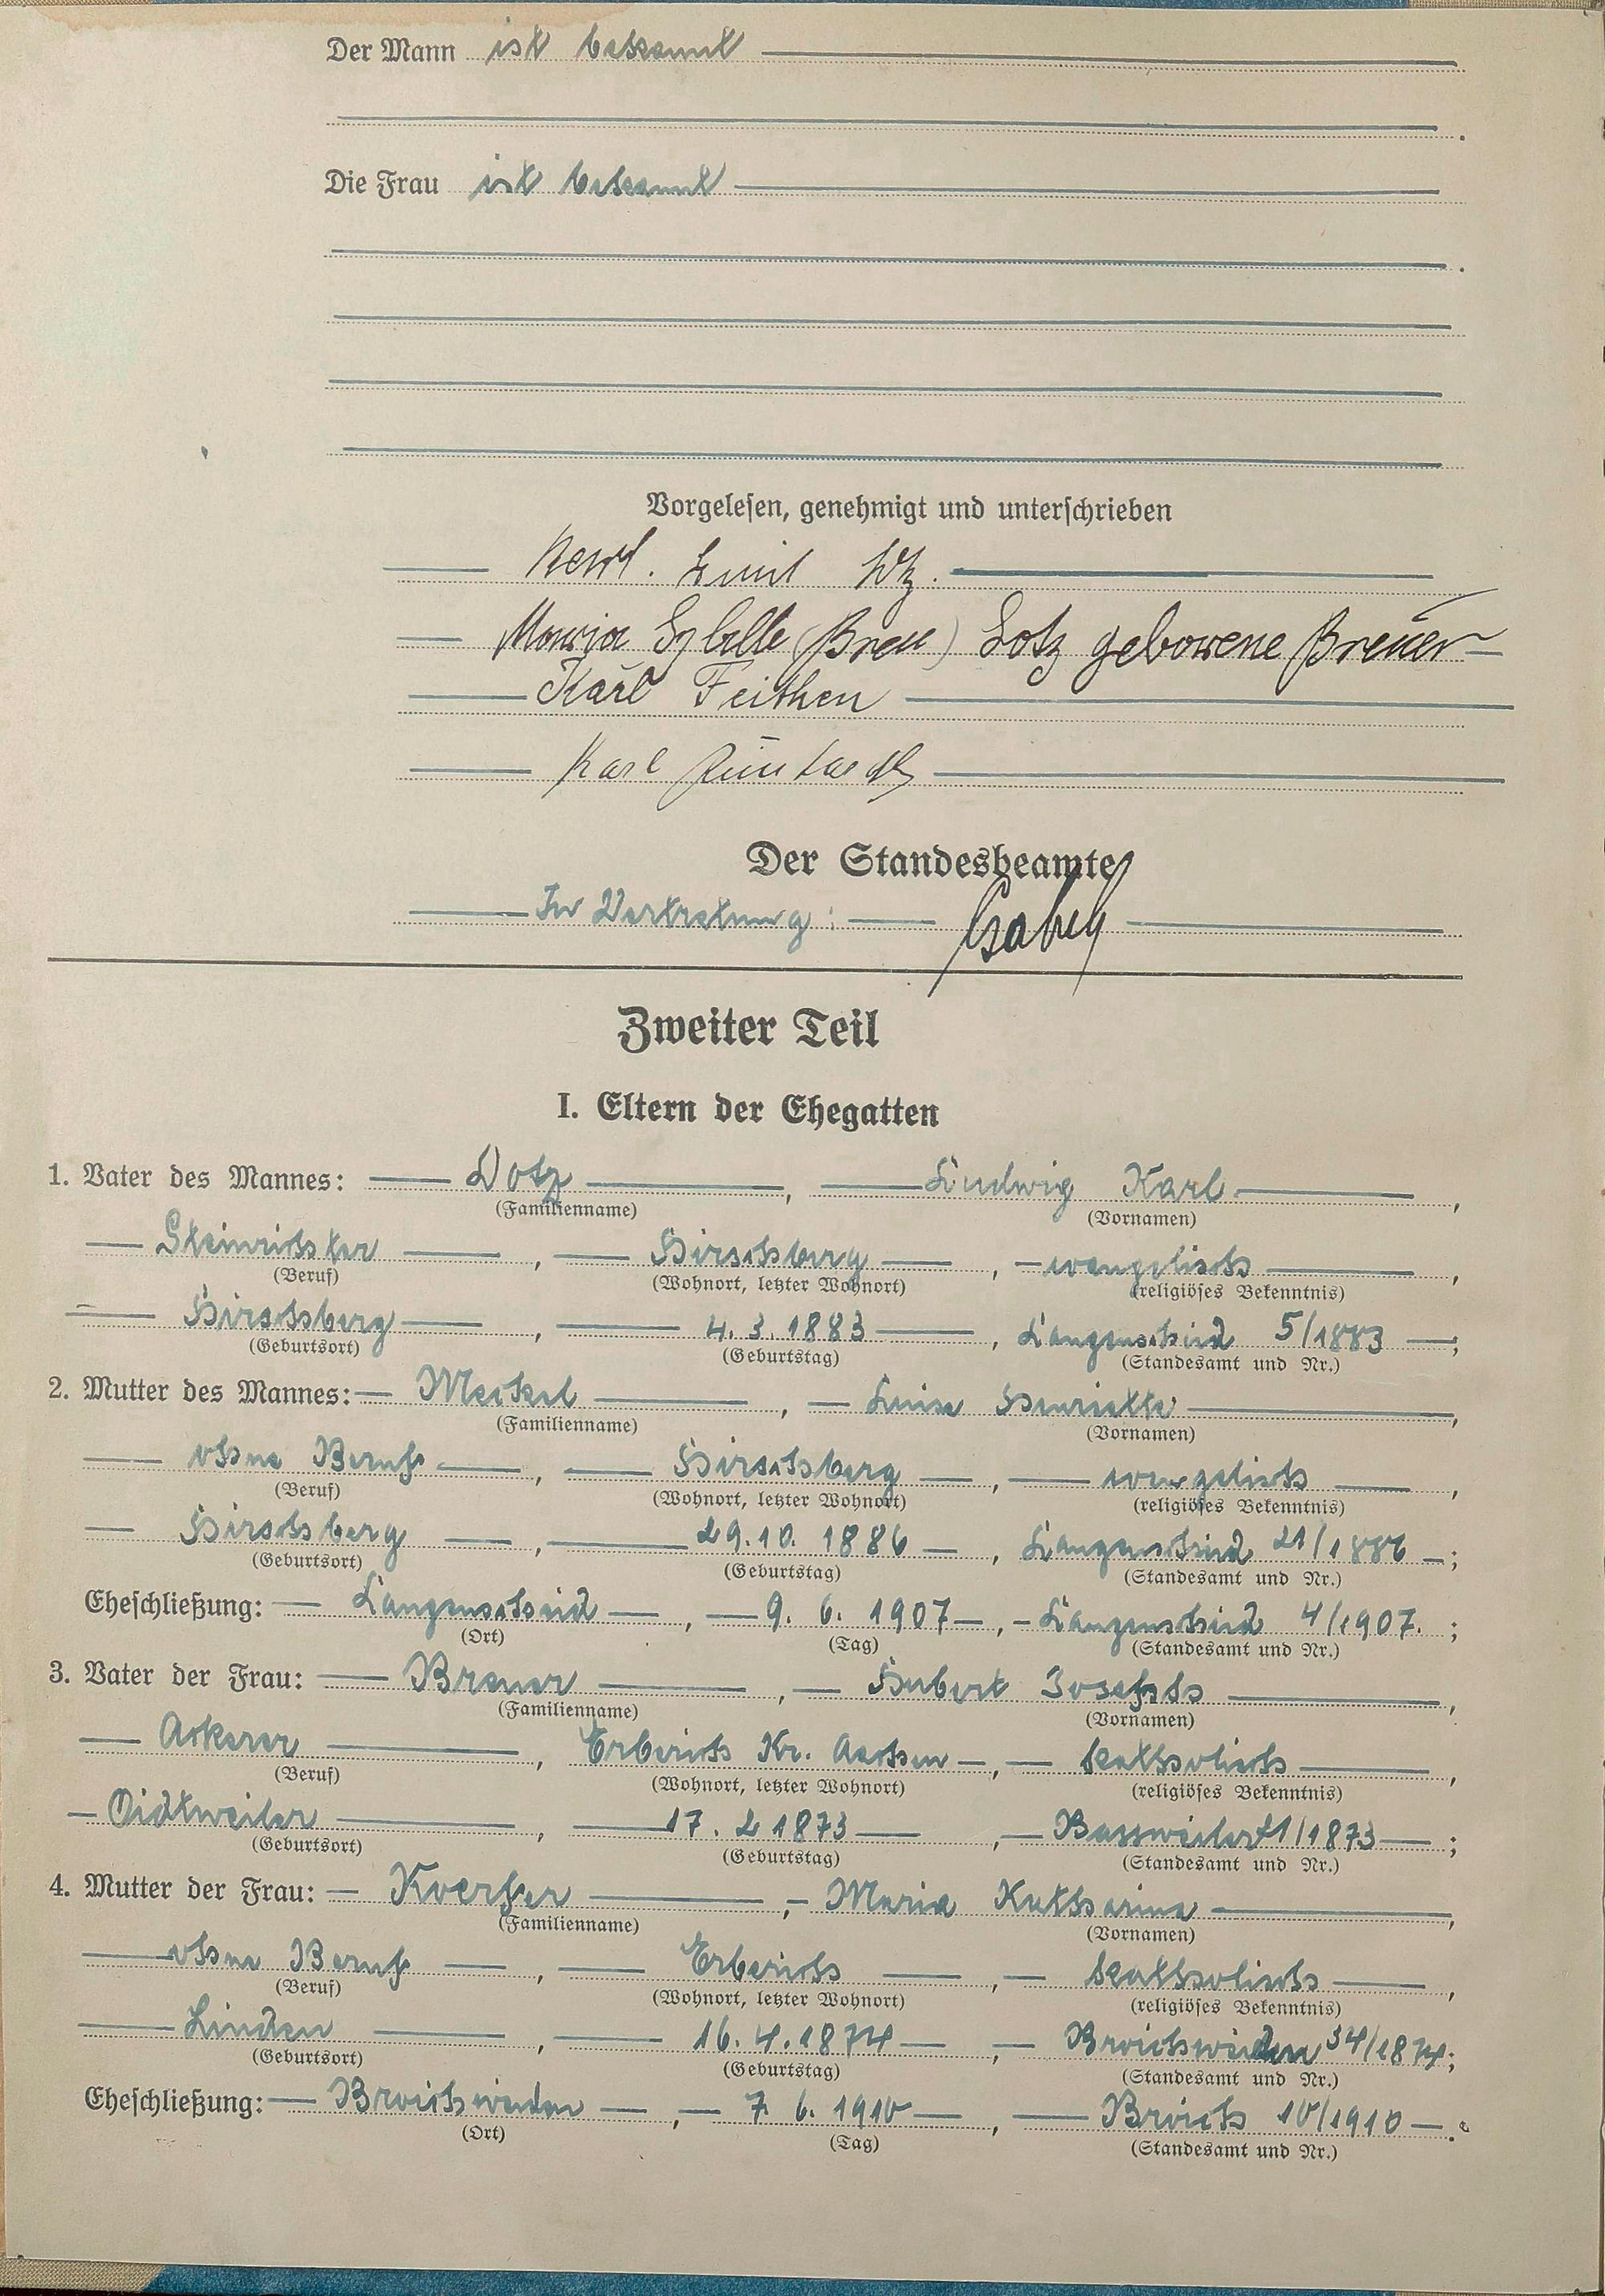 Der Mann ist bekannt
Die Frau ist bekannt
Vorgelesen, genehmigt und unterschrieben
Emil
Maria Sybille (Breu) Dotz geborene Breuer
Karl Feithen
Karl
Der Standesbeamte
In Vertretung:
Zweiter Teil
I. Eltern der Ehegatten
1. Vater des Mannes: Dotz, Ludwig Karl,
(Familienname) (Vornamen)
Steinrichter, Hirschberg, evangelisch,
(Beruf) (Wohnort, letzter Wohnort) (religiöses Bekenntnis)
Hirschberg, 4.3.1883, Langenscheid 5/1883;
(Geburtsort) (Geburtstag) (Standesamt und Nr.)
2. Mutter des Mannes: Meckel, Luise Henriette,
(Familienname) (Vornamen)
ohne Beruf, Hirschberg, evangelisch,
(Beruf) (Wohnort, letzter Wohnort) (religiöses Bekenntnis)
Hirschberg, 29.10.1886, Langenscheid 21/1886;
(Geburtsort) (Geburtstag) (Standesamt und Nr.)
Eheschließung: Langenscheid, 9. 6. 1907, Langenscheid 4/1907.;
(Ort) (Tag) (Standesamt und Nr.)
3. Vater der Frau: Breuer, Hubert Joseph,
(Familienname) (Vornamen)
Ackerer, Erberich Kr. Aachen, katholisch,
(Beruf) (Wohnort, letzter Wohnort) (religiöses Bekenntnis)
Oidtweiler, 17. 2 1873, 1/1873;
(Geburtsort) (Geburtstag) (Standesamt und Nr.)
4. Mutter der Frau: Koerfer, Maria Katharina,
(Familienname) (Vornamen)
ohne Beruf, Erberich, katholisch,
(Beruf) (Wohnort, letzter Wohnort) (religiöses Bekenntnis)
Linden, 16.4.1874, Broichweiden 34/1874;
(Geburtsort) (Geburtstag) (Standesamt und Nr.)
Eheschließung: Broichweiden, 7. 6. 1910, Broich 10/1910.
(Ort) (Tag) (Standesamt und Nr.)